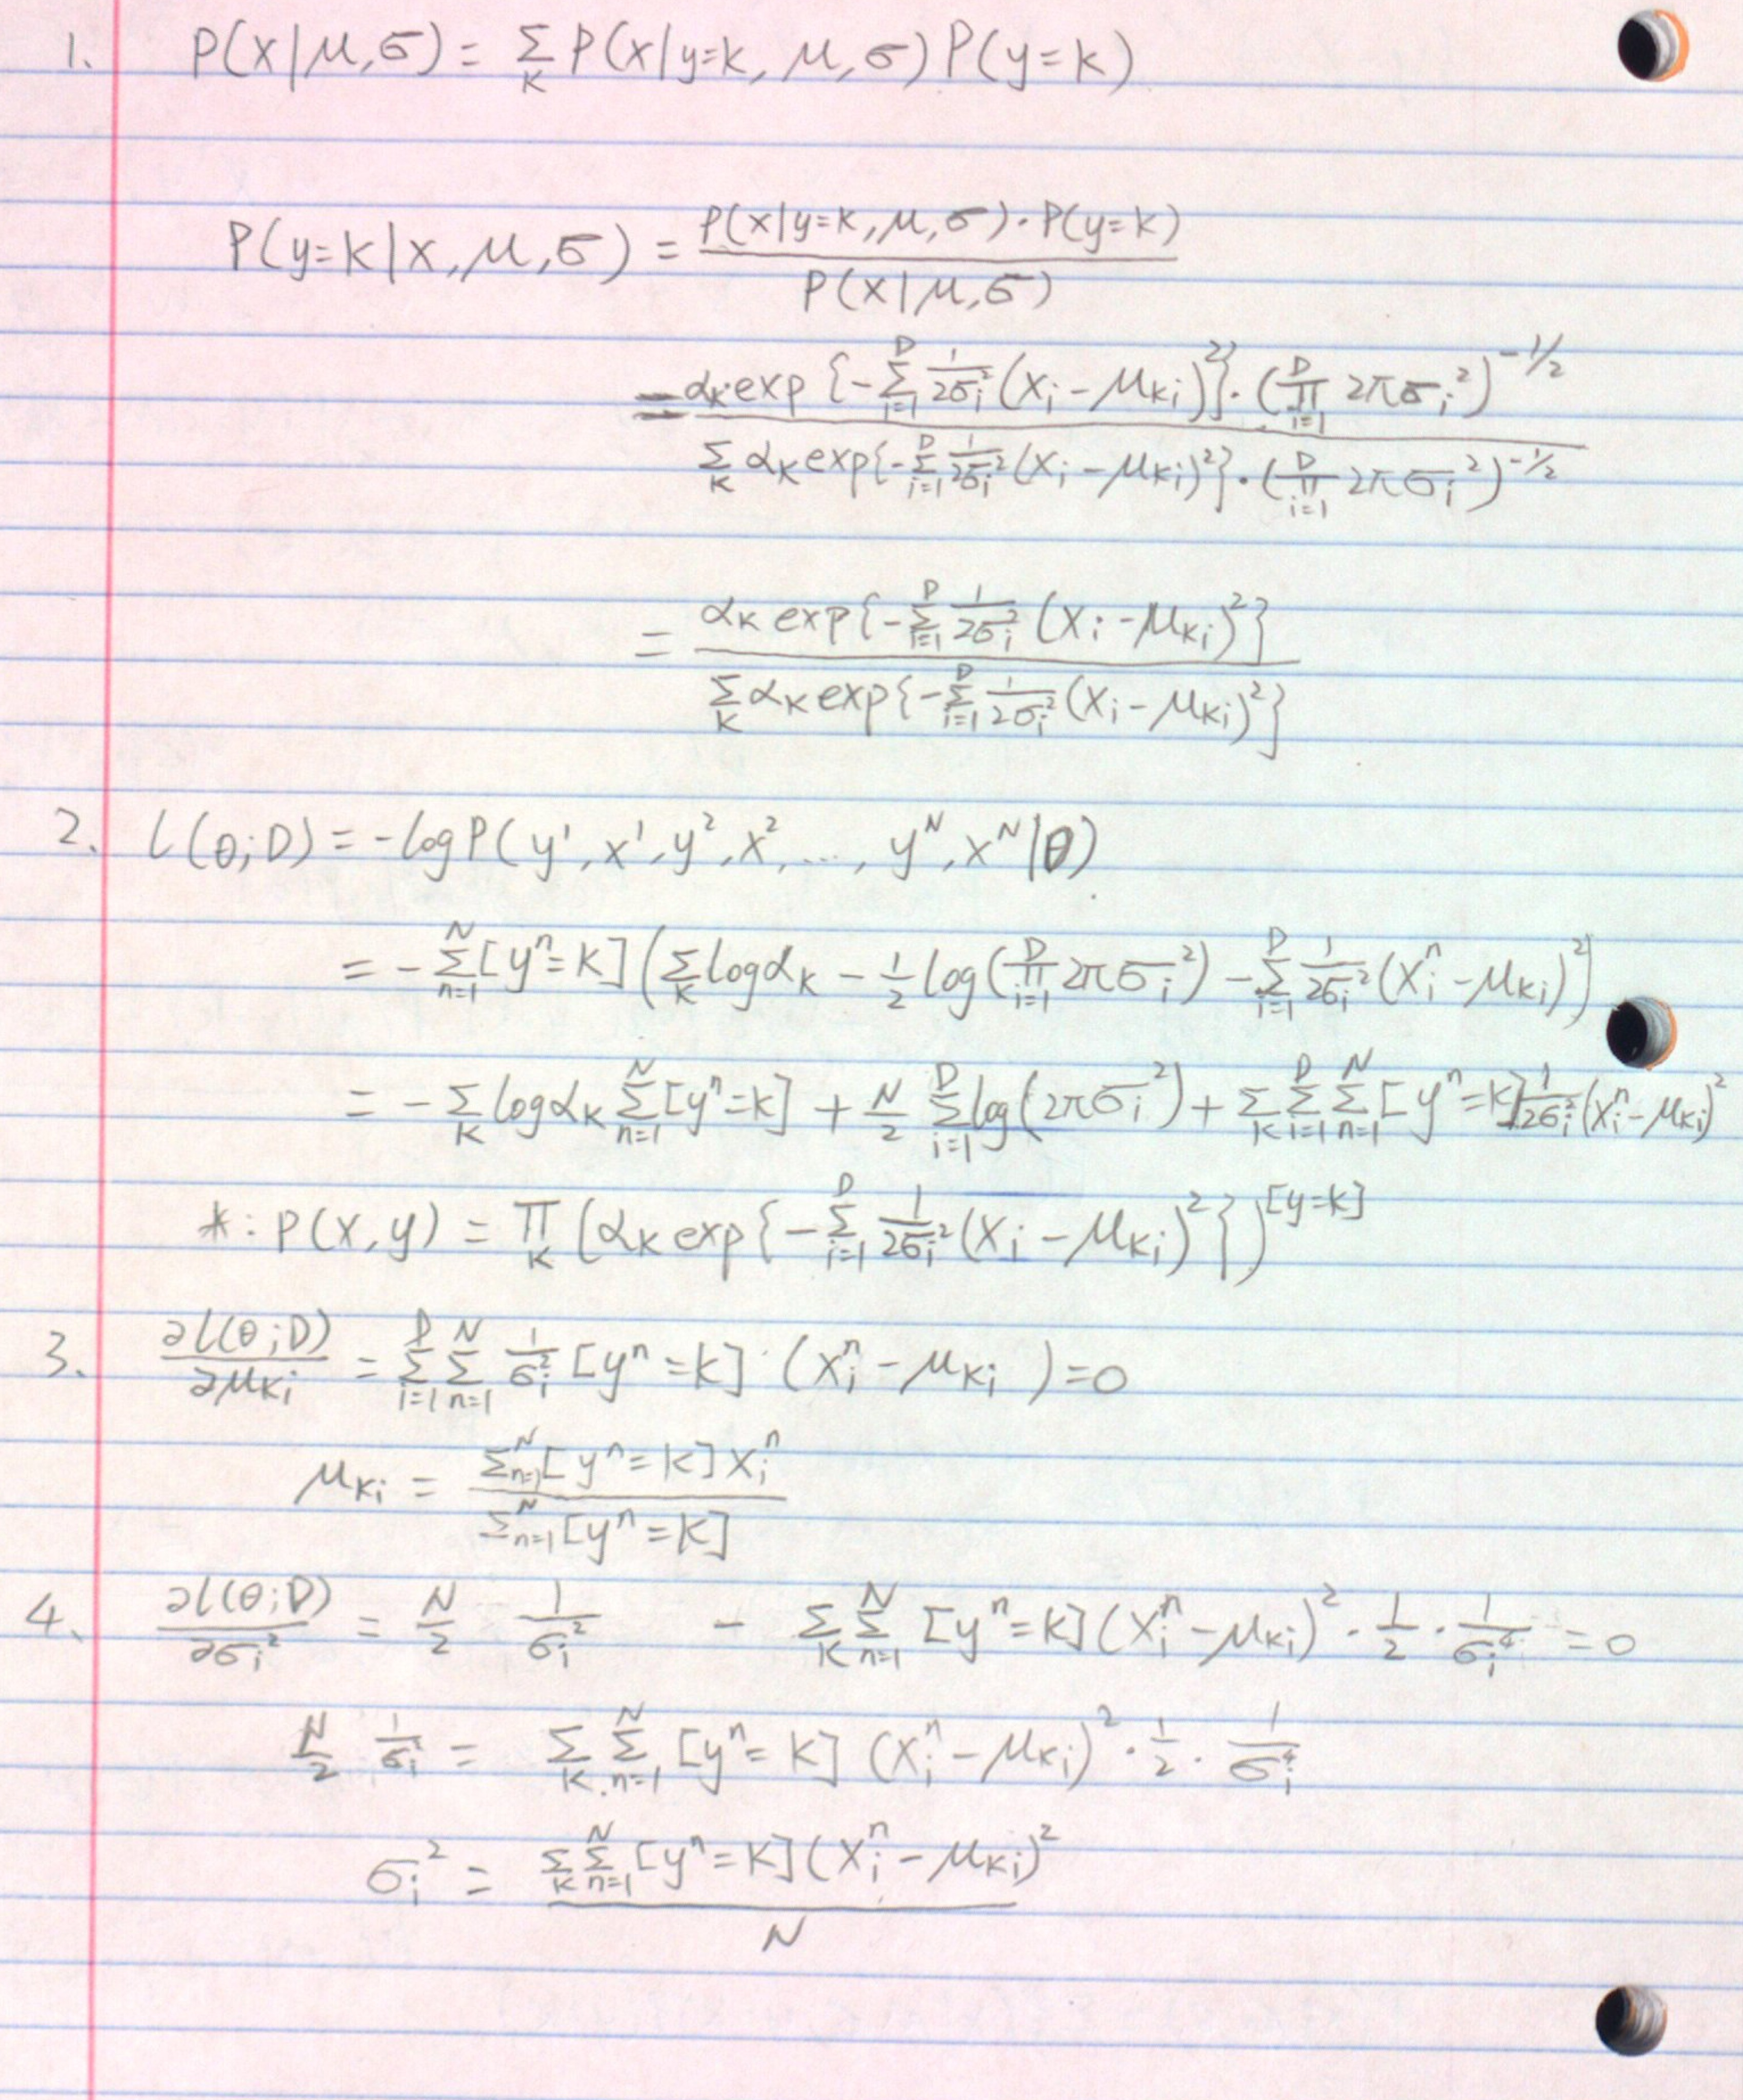 1. P(x|μ,σ) = Σ_k P(x|y=k, μ,σ) P(y=k)
P(y=k|x,μ,σ) = \frac{P(x|y=k,μ,σ)·P(y=k)}{P(x|μ,σ)}
= \frac{α_k exp{-Σ_{i=1}^{D} \frac{1}{2σ_i^2}(x_i-μ_{ki})^2}·(Π_{i=1}^{D} 2πσ_i^2)^{-1/2}}{Σ_k α_k exp{-Σ_{i=1}^{D} \frac{1}{2σ_i^2}(x_i-μ_{ki})^2}·(Π_{i=1}^{D} 2πσ_i^2)^{-1/2}}
= \frac{α_k exp{-Σ_{i=1}^{D} \frac{1}{2σ_i^2}(x_i-μ_{ki})^2}}{Σ_k α_k exp{-Σ_{i=1}^{D} \frac{1}{2σ_i^2}(x_i-μ_{ki})^2}}
2. l(θ;D) = -log P(y^1,x^1,y^2,x^2,...,y^N,x^N|θ)
= -Σ_{n=1}^{N}[y^n=k](Σ_k log α_k - \frac{1}{2} log(Π_{i=1}^{D} 2πσ_i^2) - Σ_{i=1}^{D} \frac{1}{2σ_i^2}(x_i^n-μ_{ki})^2)
= -Σ_k log α_k Σ_{n=1}^{N}[y^n=k] + \frac{N}{2} Σ_{i=1}^{D} log(2πσ_i^2) + Σ_k Σ_{i=1}^{D} Σ_{n=1}^{N}[y^n=k] \frac{1}{2σ_i^2}(x_i^n-μ_{ki})^2
*: P(x,y) = Π_k (α_k exp{-Σ_{i=1}^{D} \frac{1}{2σ_i^2}(x_i-μ_{ki})^2})^{[y=k]}
3. \frac{∂l(θ;D)}{∂μ_{ki}} = Σ_{i=1}^{D} Σ_{n=1}^{N} \frac{1}{σ_i^2}[y^n=k]·(x_i^n-μ_{ki}) = 0
μ_{ki} = \frac{Σ_{n=1}^{N}[y^n=k]x_i^n}{Σ_{n=1}^{N}[y^n=k]}
4. \frac{∂l(θ;D)}{∂σ_i^2} = \frac{N}{2} \frac{1}{σ_i^2} - Σ_k Σ_{n=1}^{N} [y^n=k](x_i^n-μ_{ki})^2·\frac{1}{2}·\frac{1}{σ_i^4} = 0
\frac{N}{2} \frac{1}{σ_i^2} = Σ_k Σ_{n=1}^{N} [y^n=k](x_i^n-μ_{ki})^2·\frac{1}{2}·\frac{1}{σ_i^4}
σ_i^2 = \frac{Σ_k Σ_{n=1}^{N}[y^n=k](x_i^n-μ_{ki})^2}{N}